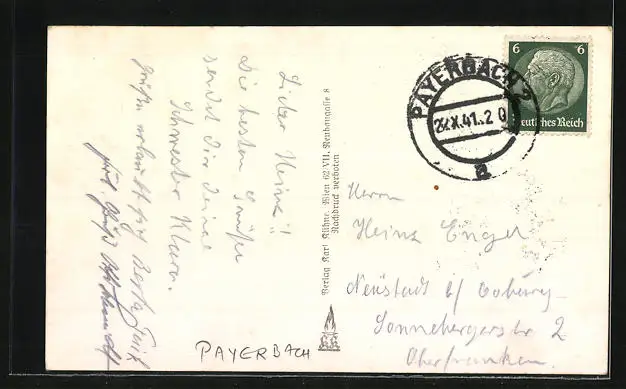 Lieber Heinz!!
Die besten Grüße
sendet Dir Deine
Schwester Klara.
Grüße
PAYERBACH
Verlag Karl Kühne, Wien 62/VII, Neubaugasse 8
Nachdruck verboten
6 6
Deutsches Reich
PAYERBACH 2
X.41.-2 0
a
Herrn
Heinz Engel
Neustadt b/ Coburg-
Sonnebergerstr 2
Oberfranken.